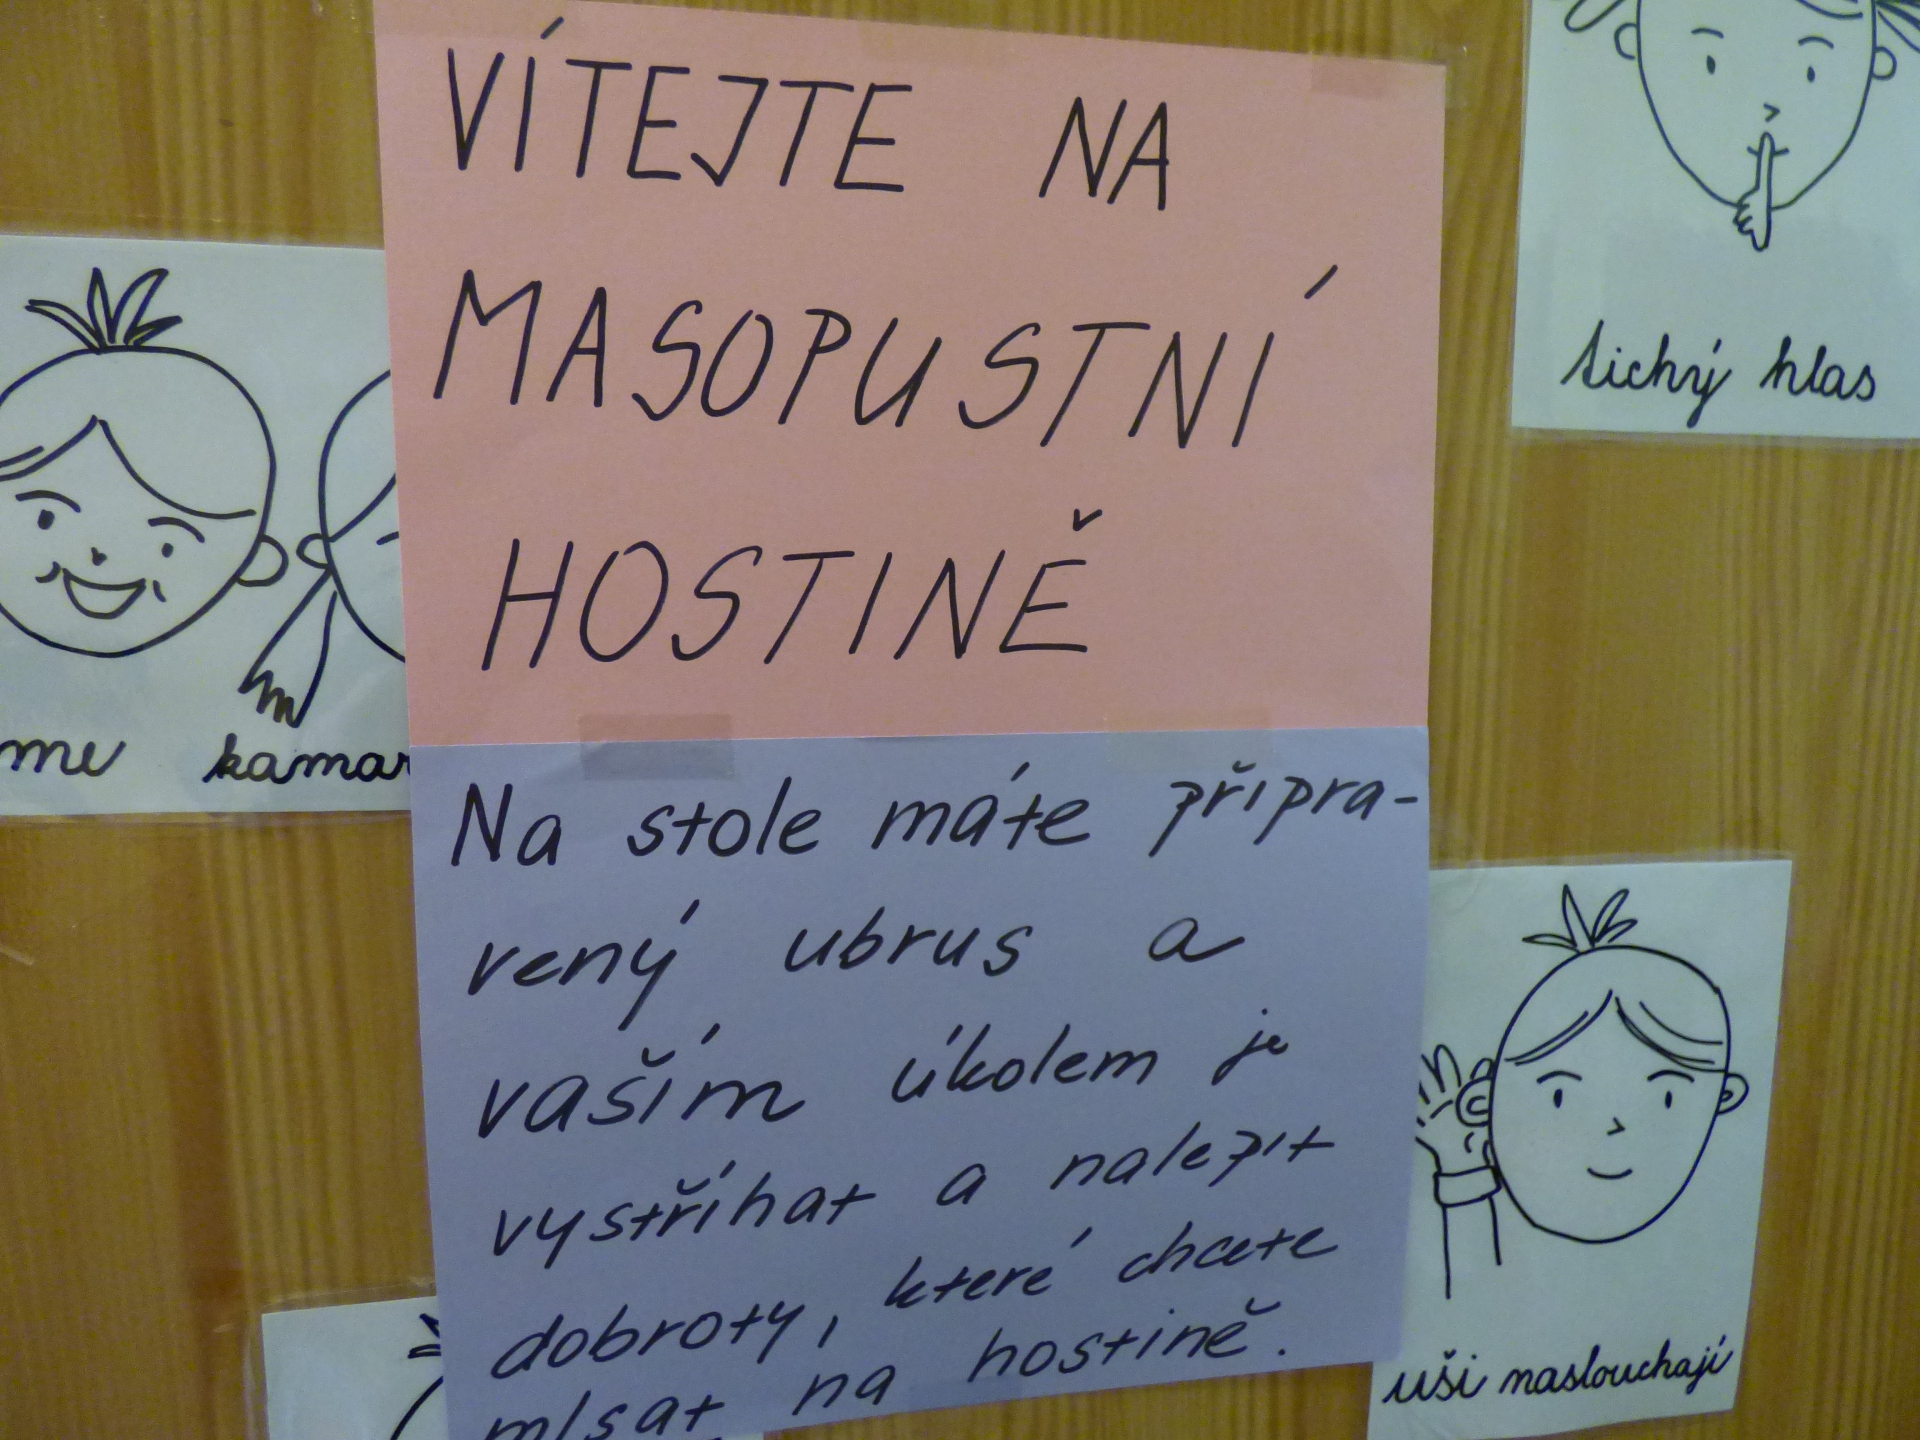 VÍTEJTE NA
MASOPUSTNÍ
HOSTINĚ
Na stole máte připra-
vený ubrus a
vaším úkolem je
vystříhat a nalepit
dobroty, které chcete
mlsat na hostině.
tichý hlas
me kamar
uši naslouchají